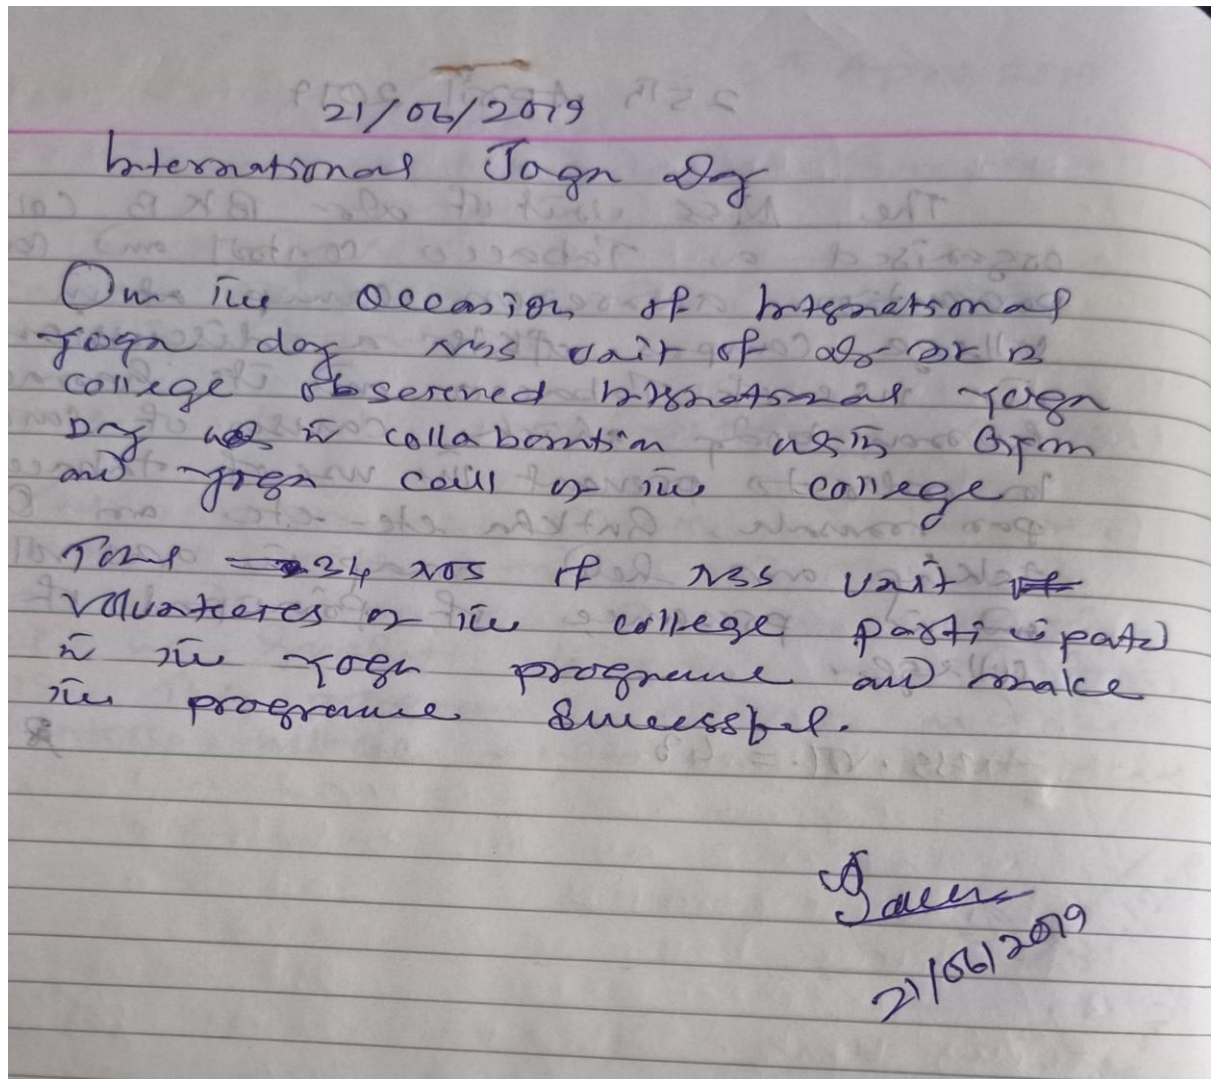 21/06/2019
International Yoga Day
On the occasion of International
Yoga day NSS unit of Dr BKB
college observed International Yoga
Day in collaboration with
and Yoga cell of the college
Total 34 nos of NSS unit
volunteeres of the college participated
in the Yoga programe and make
the programe successful.
21/06/2019